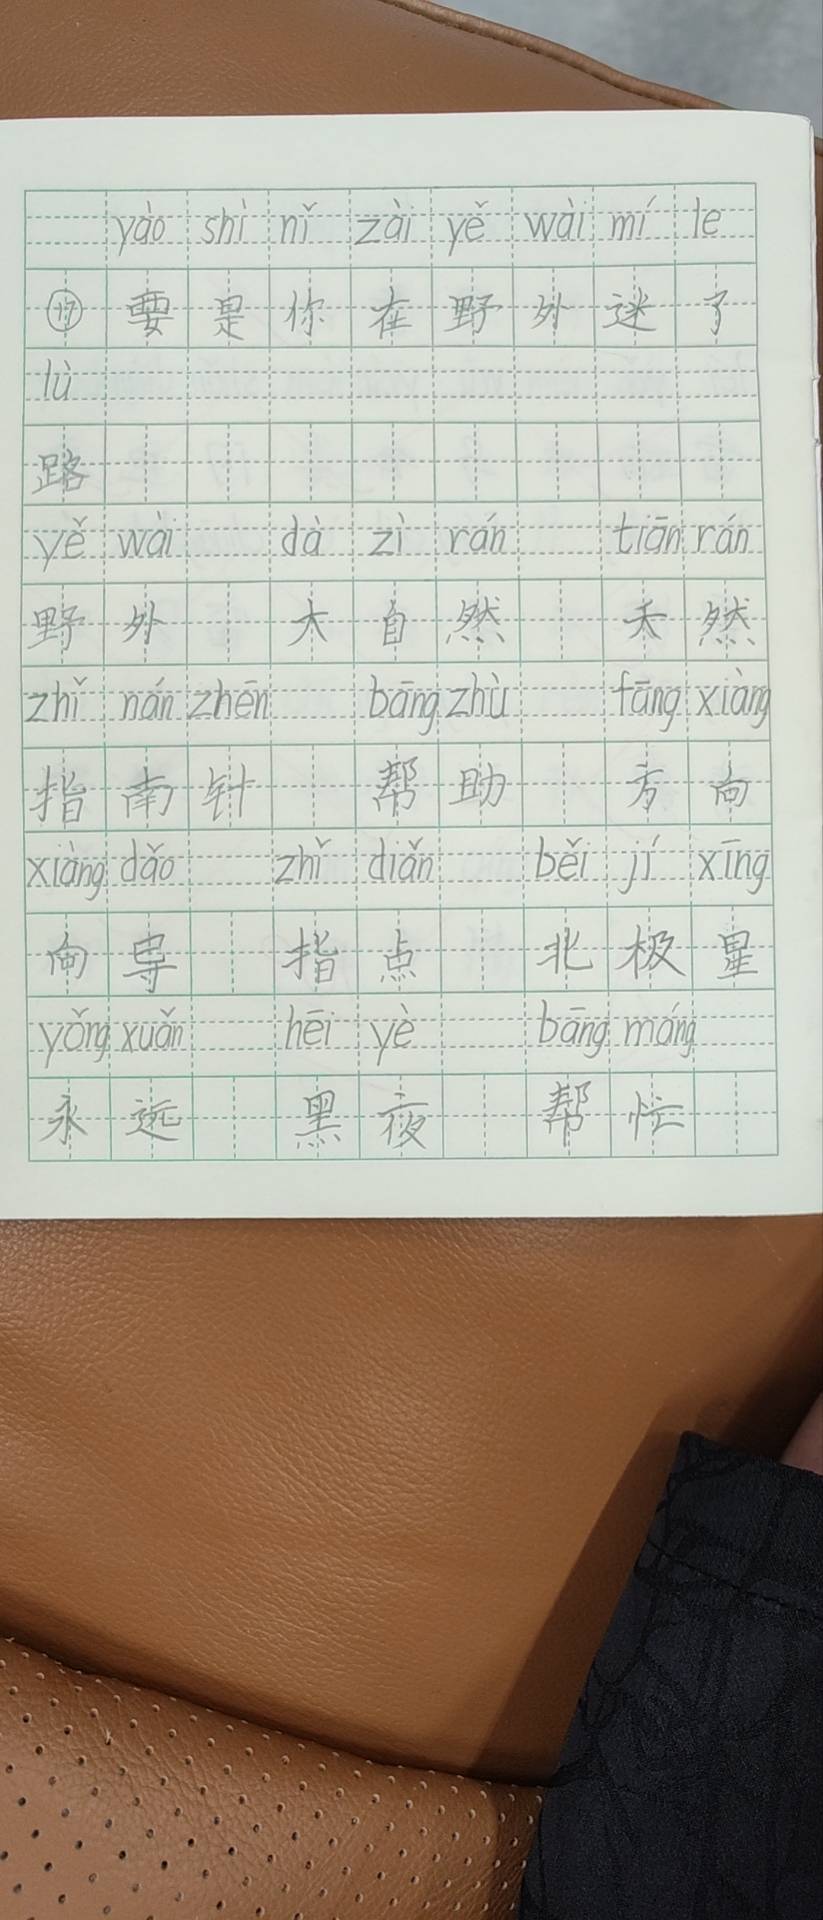 yào shì nǐ zài yě wài mí le
⑰ 要 是 你 在 野 外 迷 了
lù
路
yě wài dà zì rán tiān rán
野 外 大 自 然 天 然
zhǐ nán zhēn bāng zhù fāng xiàng
指 南 针 帮 助 方 向
xiàng dǎo zhǐ diǎn běi jí xīng
向 导 指 点 北 极 星
yǒng xuǎn hēi yè bāng máng
永 远 黑 夜 帮 忙